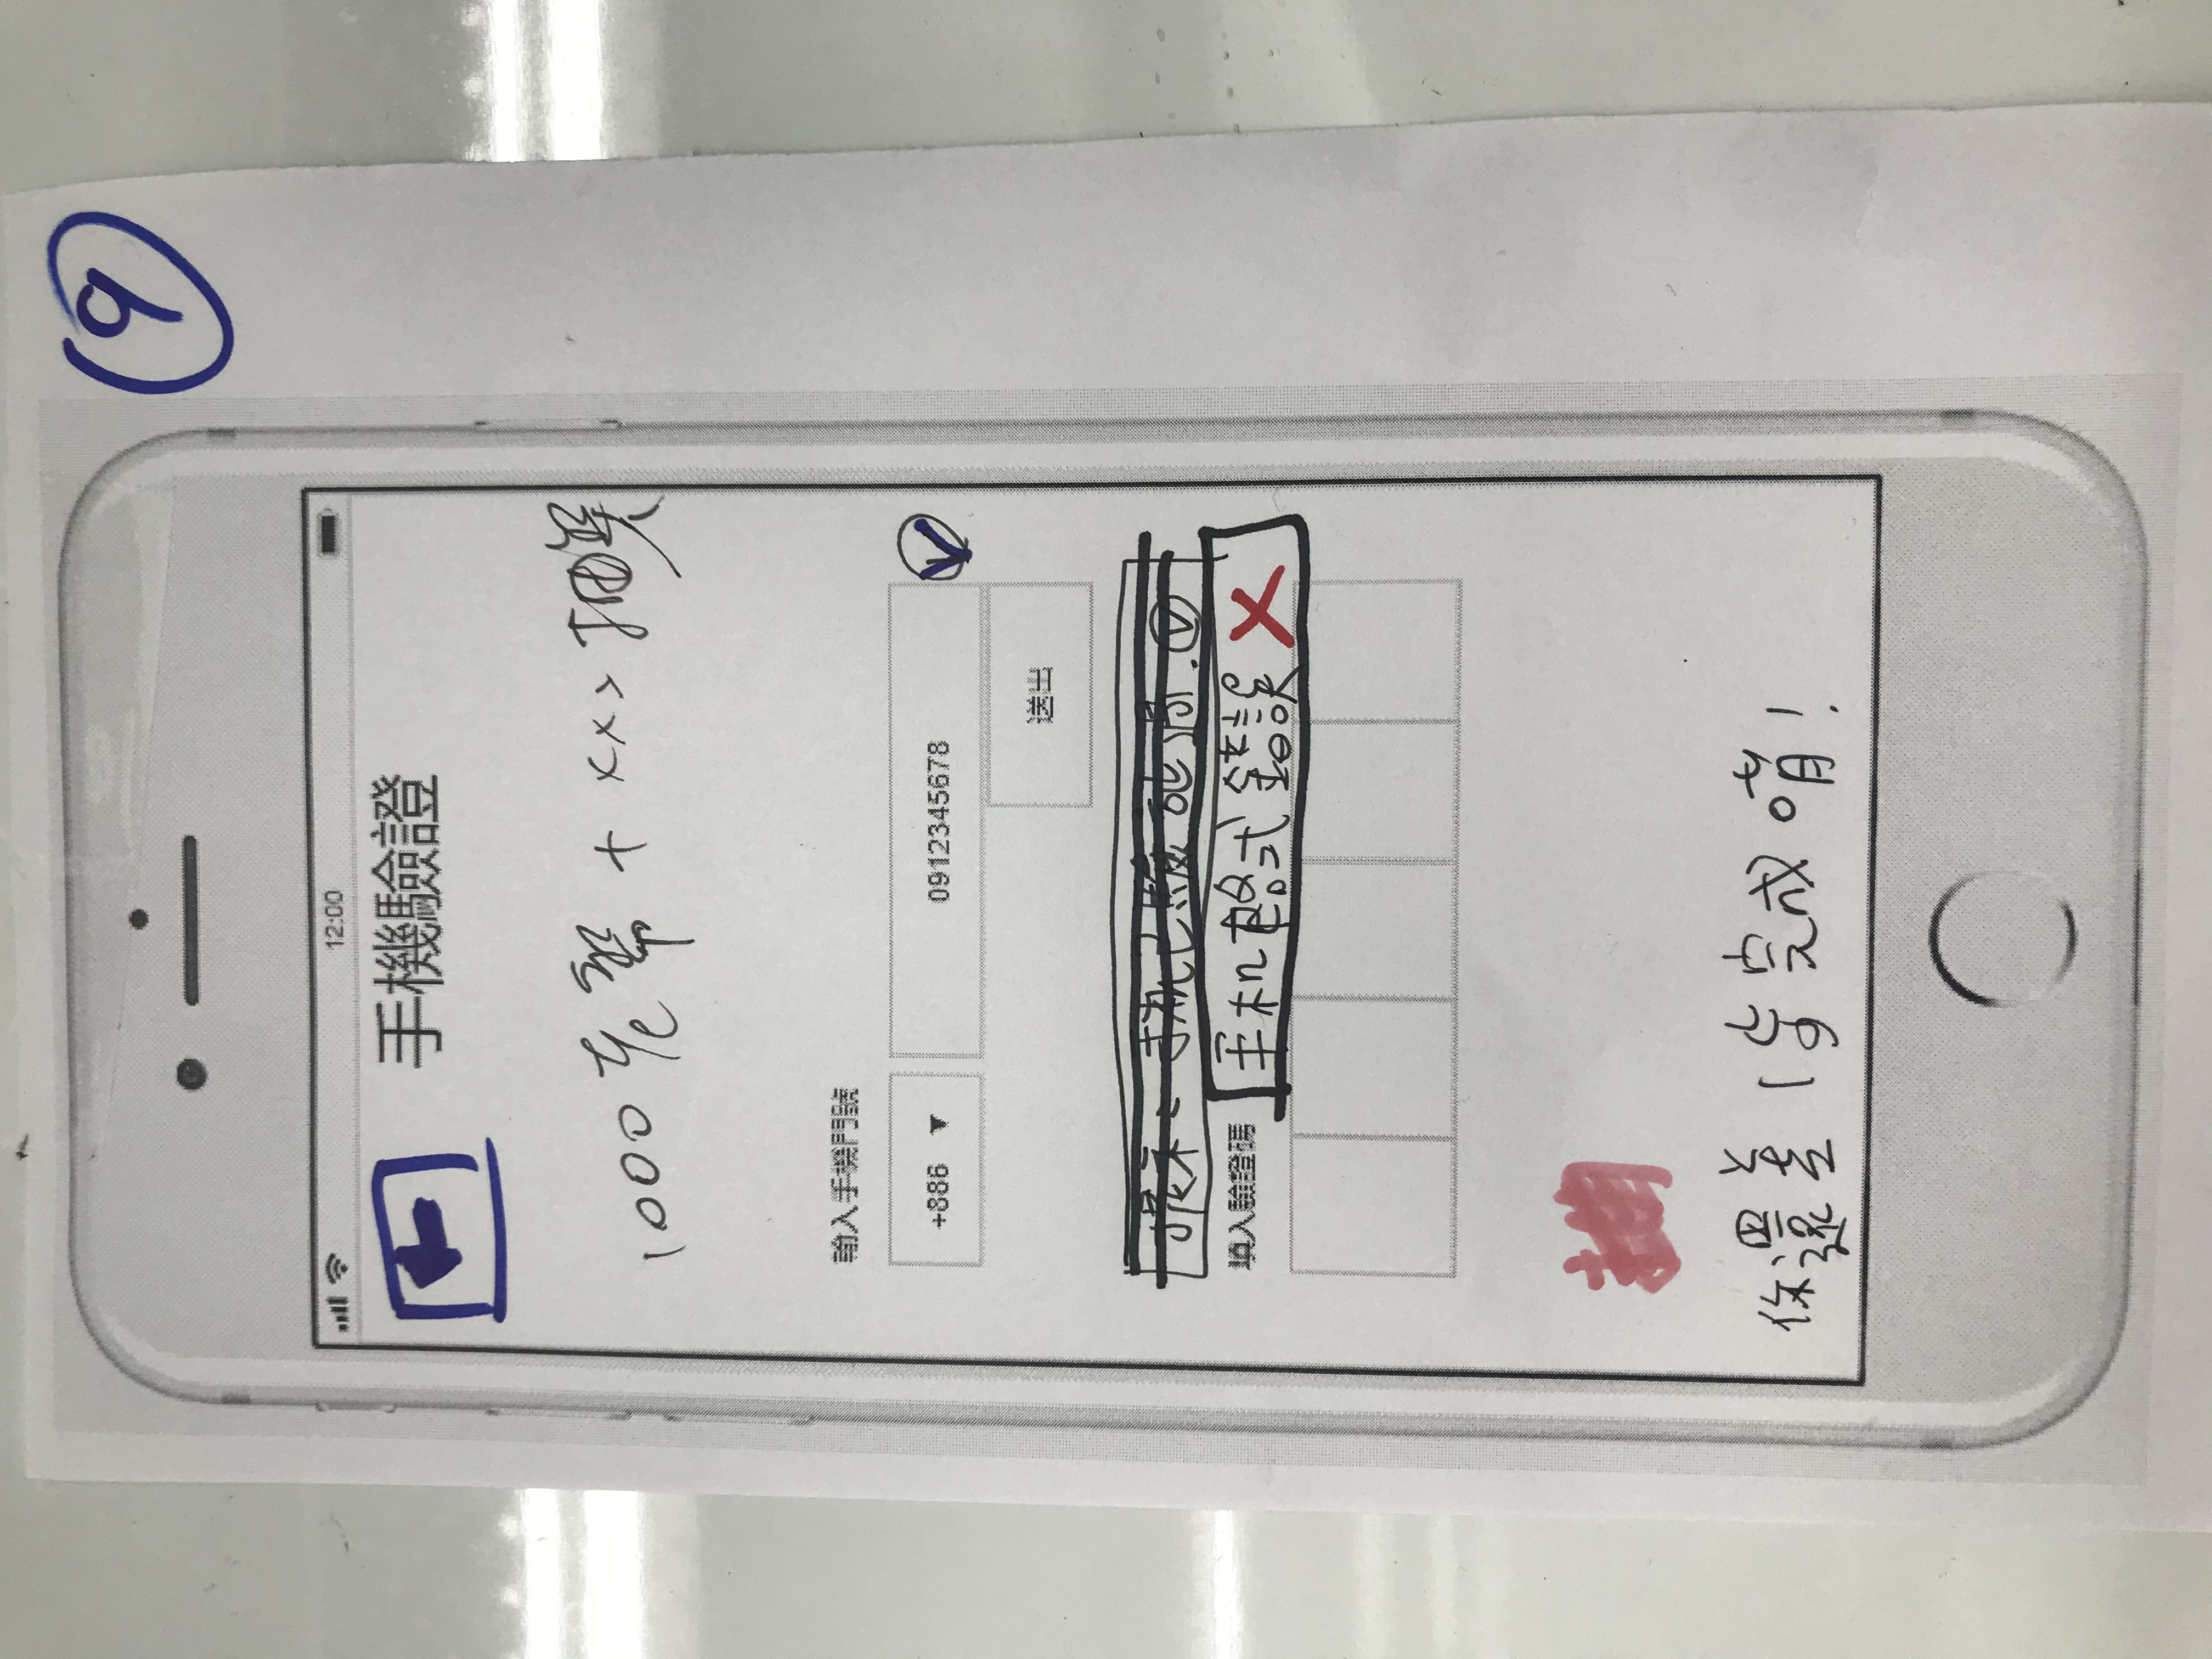 9
12:00
手機驗證
1000元幣 + xxx抽獎
輸入手機門號
+886 ▼ 0912345678
送出
提示：手机已驗證過.
填入驗證碼 手机格式錯誤 X
抽
你還差1步完成唷!